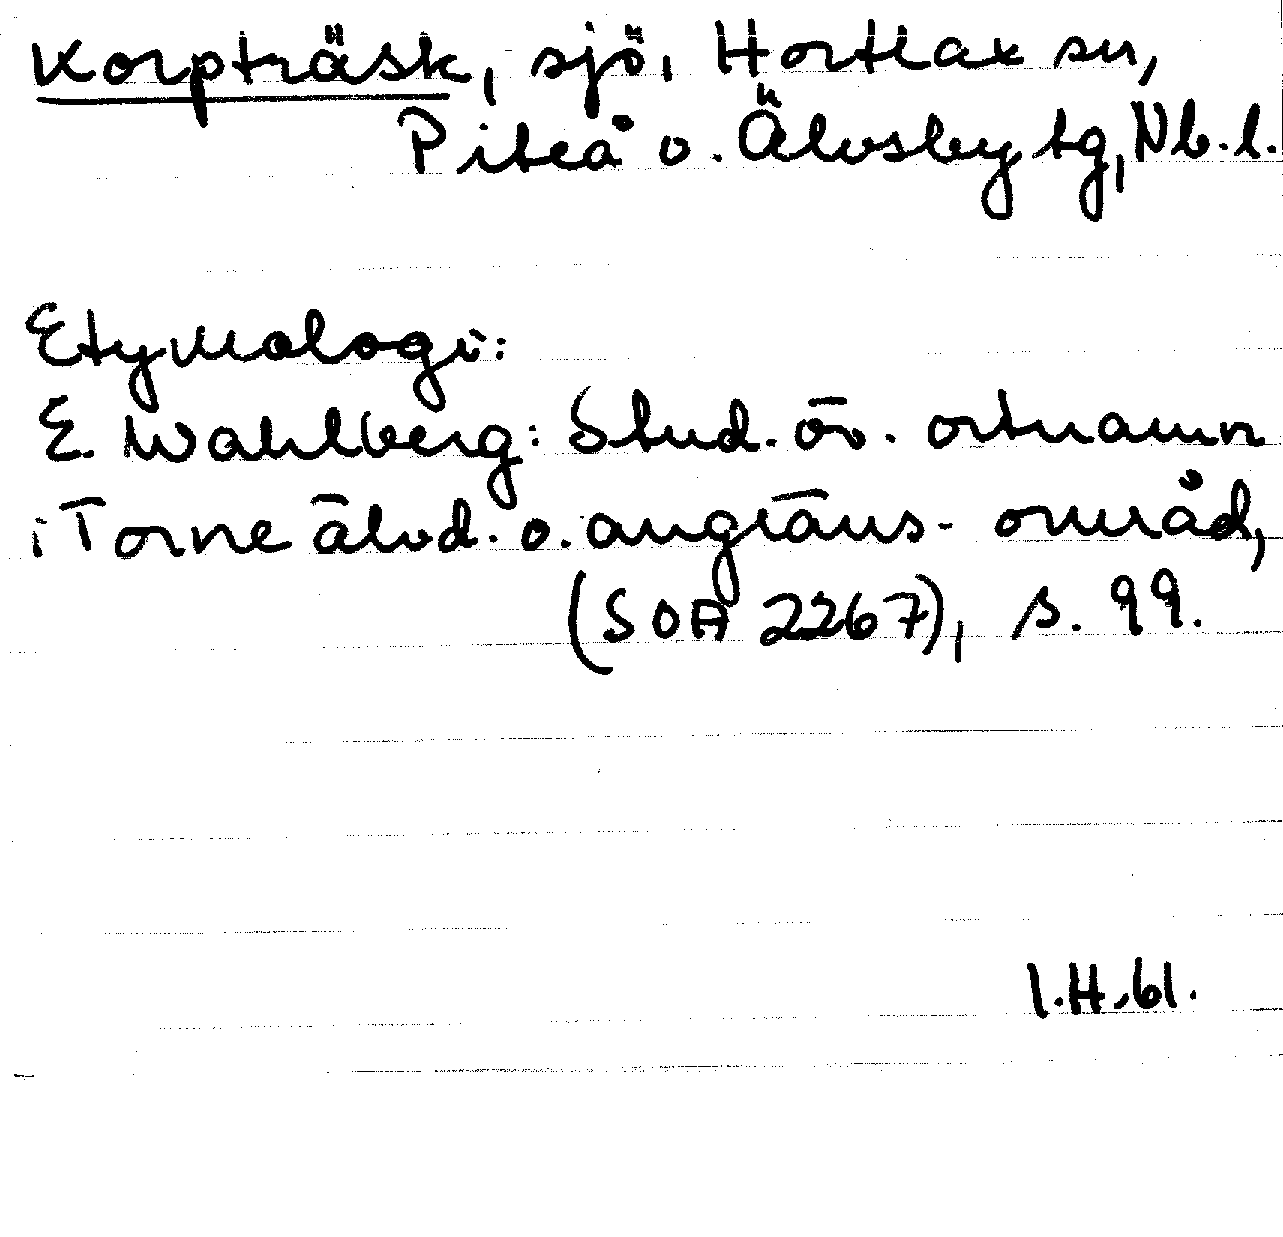 Korpträsk, sjö, Hortlax sn,
Piteå o. Älvsby tg, Nb. l.
Etymologi:
E. Wahlberg: Stud. öv. ortnamn
i Torne älvd. o. angräns. område,
(SOA 2267), s. 99.
I.H. 61.